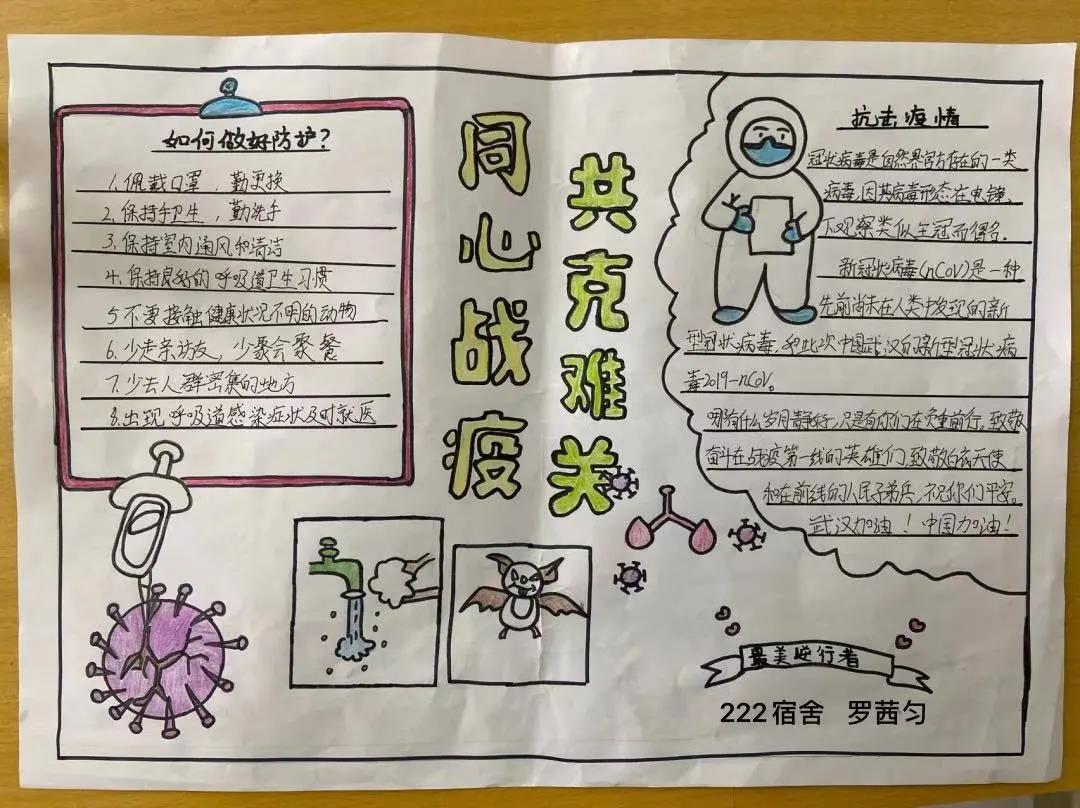 如何做好防护?
1.佩戴口罩，勤更换
2.保持手卫生，勤洗手
3.保持室内通风和清洁
4.保持良好的呼吸道卫生习惯
5.不要接触健康状况不明的动物
6.少走亲访友，少聚会聚餐
7.少去人群密集的地方
8.出现呼吸道感染症状及时就医
同心战疫
共克难关
抗击疫情
冠状病毒是自然界广泛存在的一类
病毒,因其病毒形态在电镜
下观察类似王冠而得名.
新冠状病毒(nCoV)是一种
先前尚未在人类中发现的新
型冠状病毒,和此次中国武汉的新型冠状病
毒2019-nCoV。
哪有什么岁月静好,只是有你们在负重前行。致敬
奋斗在战疫第一线的英雄们,致敬白衣天使
和在前线的人民子弟兵,祝你们平安。
武汉加油！中国加油！
最美逆行者
222宿舍 罗茜匀